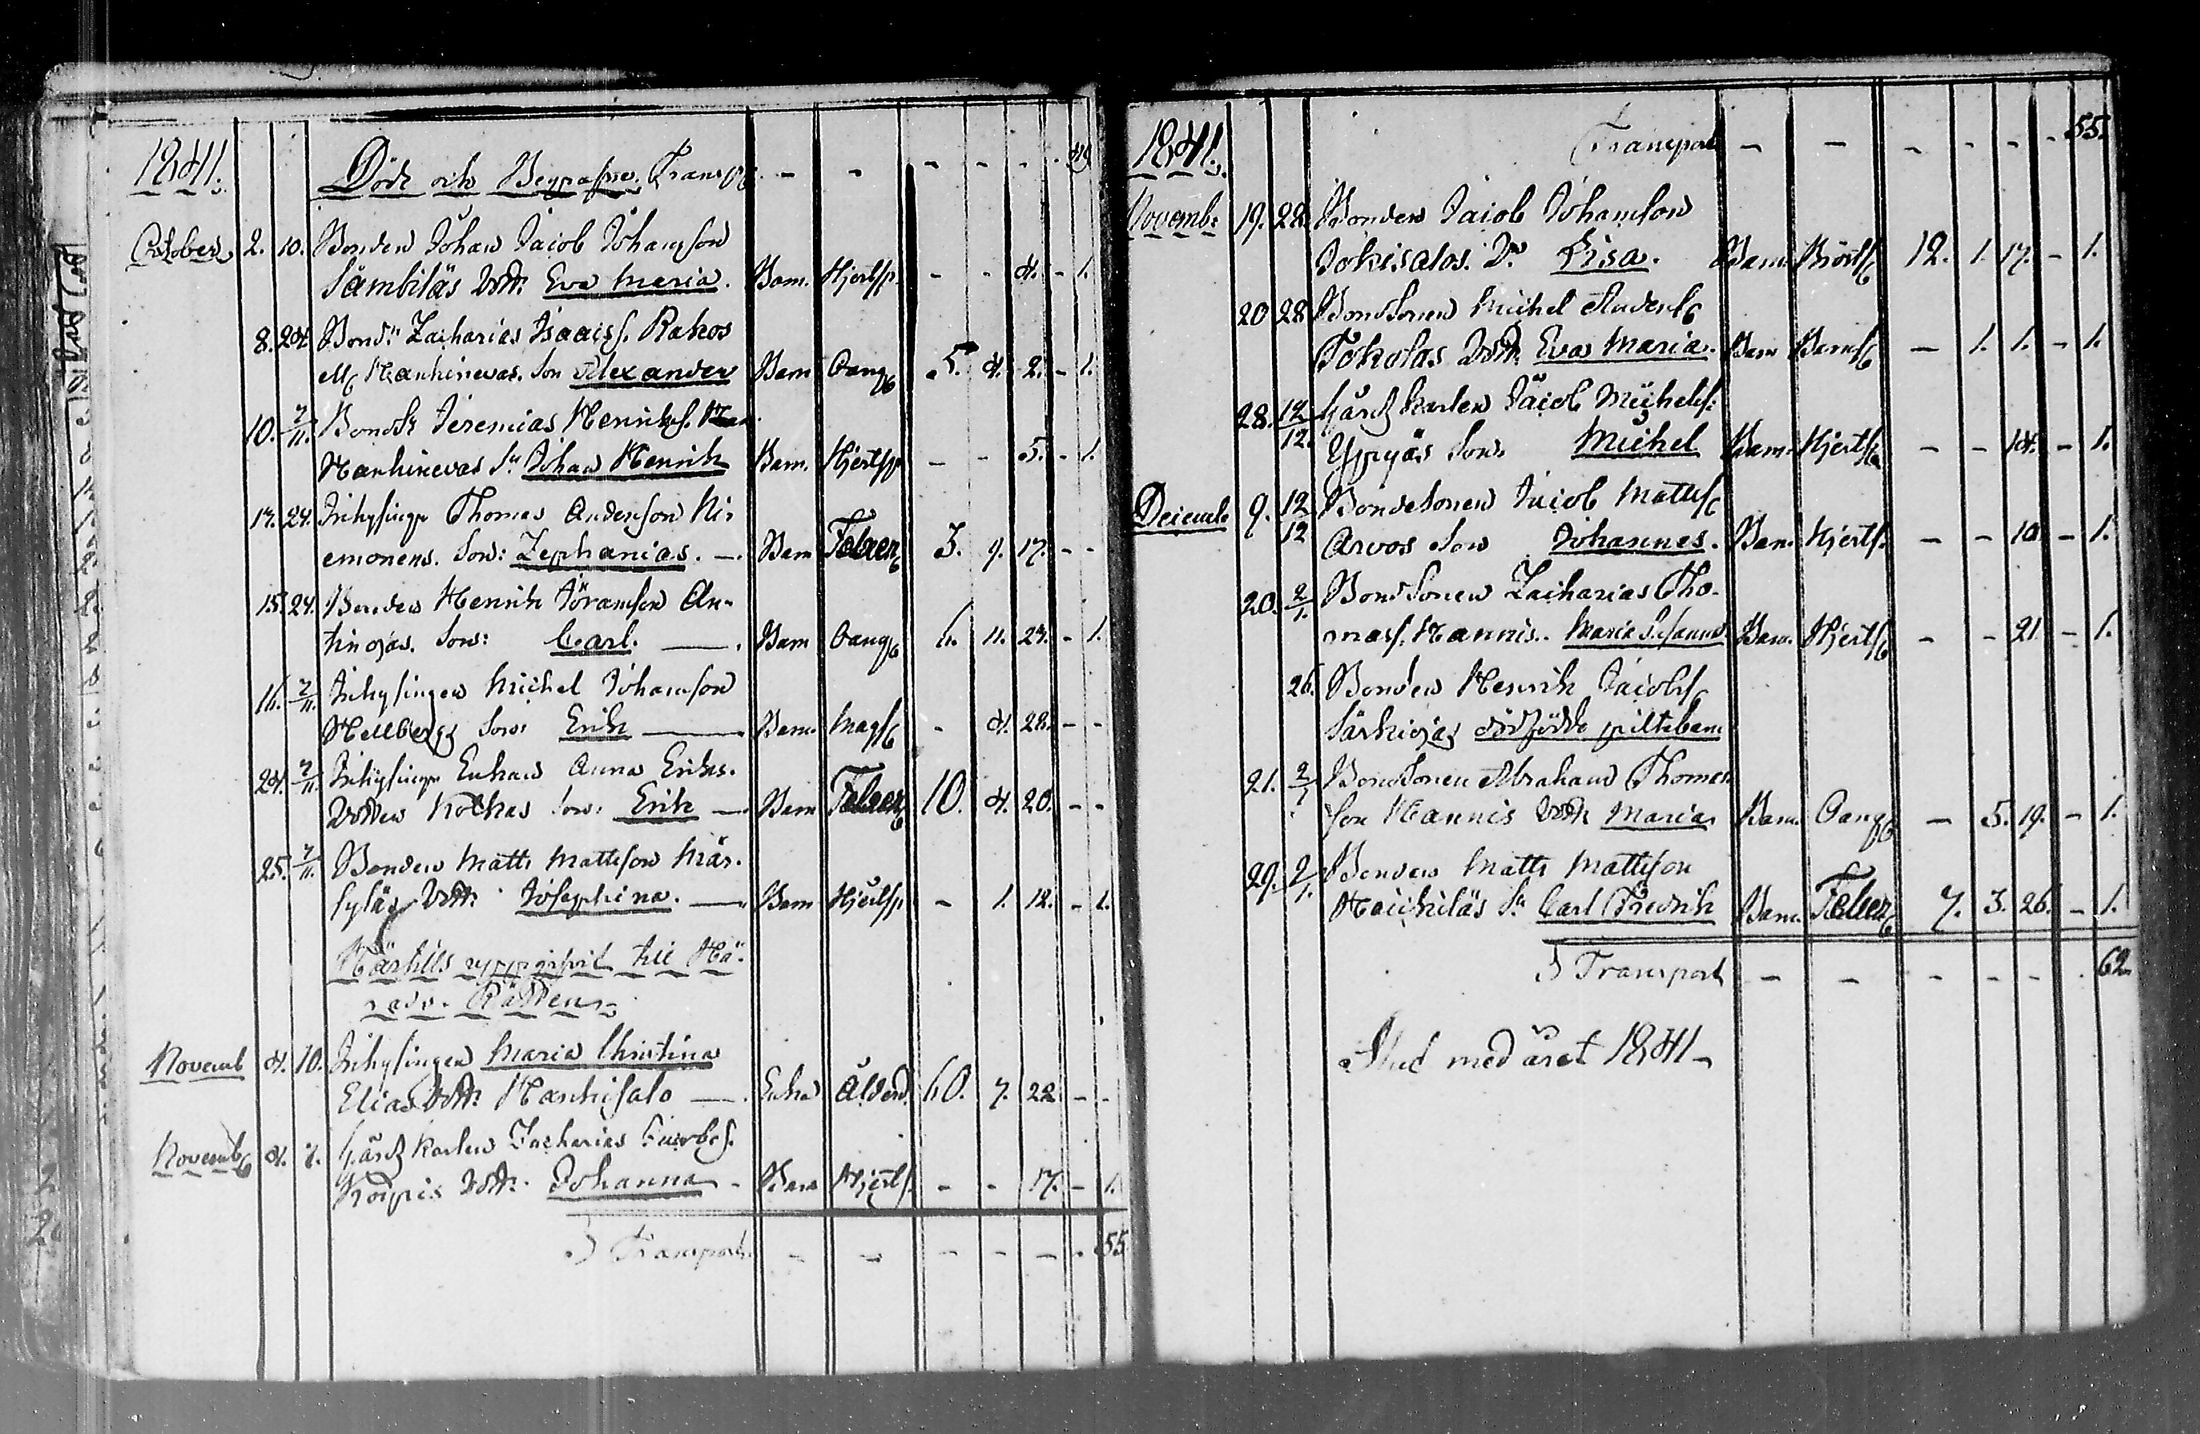 1841.
Döde och Begrafne. Transp. - - - - - -
October 2. 10. Bonden Johan Jacob Johansson
Sämbiläs dottr: Eva Maria. Barn. Hjertsp. - - 4. - 1.
8. 24. Bond: Zacharias Isaacss. Rahos
Manhinevas. Son Alexander Barn 5. 4. 2. - 1.
10. 7/11. Jeremias Henrikss.
Manhinevas Sn Johan Henrik Barn. Hjertsp - - 5. - 1.
17. 24. Inhysingn Thomas Anderson Ni-
emonens. Son: Zephanias. - Barn Feber 3. 9. 17. - -
15. 24. Bonden Henrik Jöransson An-
tinojas. Son: Carl. - Barn 6. 11. 27. - 1.
16. 7/11. Inhysingen Michel Johansson
Hellbergs Son: Erik - Barn. - 4. 28. - -
24. 7/11. Inhysings Enkan Anna Eriks.
dotter Kolkas Son: Erik - Barn Feber 10. 4. 20. - -
25. 7/11. Bonden Matts Mattsson Mär-
syläs Dottr: Josephina. - Barn Hjertsp. - 1. 12. - 1.
till Hä-
rads Rätten.
Novemb 4. 10. Inhysingen Maria Christina
Elias dottr: Manhisalo - Enka Ålderd. 60. 7. 22 - -
Novemb 4. 7. Gårdskarlen Zacharias
Koipis Dottr. Johanna - Barn Hjertsp. - - 17. - 1.
Transport - - - - - - 55
1841.
Transport - - - - - - 55.
Novemb: 19. 28. Bonden Jacob Johansson
Jokisalos. Dr Lisa. Barn. 12. 1. 17. - 1.
20 28 Bondsonen Michel Anderss
Tokolas Dottr Eva Maria. Barn - 1. 1. - 1.
28. 12/12. Gårdskarlen Jacob Michels:
Yppyäs Son: Michel Barn. Hjertsp - - 14. - 1.
Decemb 9. 12/12 Bondesonen Jacob Matts
Arvos Son Johannes. Barn. Hjertsp. - - 10 - 1.
20. 2/1. Bondsonen Zacharias Tho-
mass. Hannis. Maria Susanna Barn. Hjertsp - - 21 - 1.
26. Bonden Henrik Jacobs
Särkiojas dödfödde piltebarn
21. 2/1 Bondsonen Abraham Thomas
son Hannis Dottr Maria Barn. - 5. 19. - 1.
29. 2/1. Bonden Matts Mattsson
Haikiläs Sn Carl Fredrik Barn. Feber 7. 3. 26. - 1.
Transport - - - - - - 62
Slut med året 1841